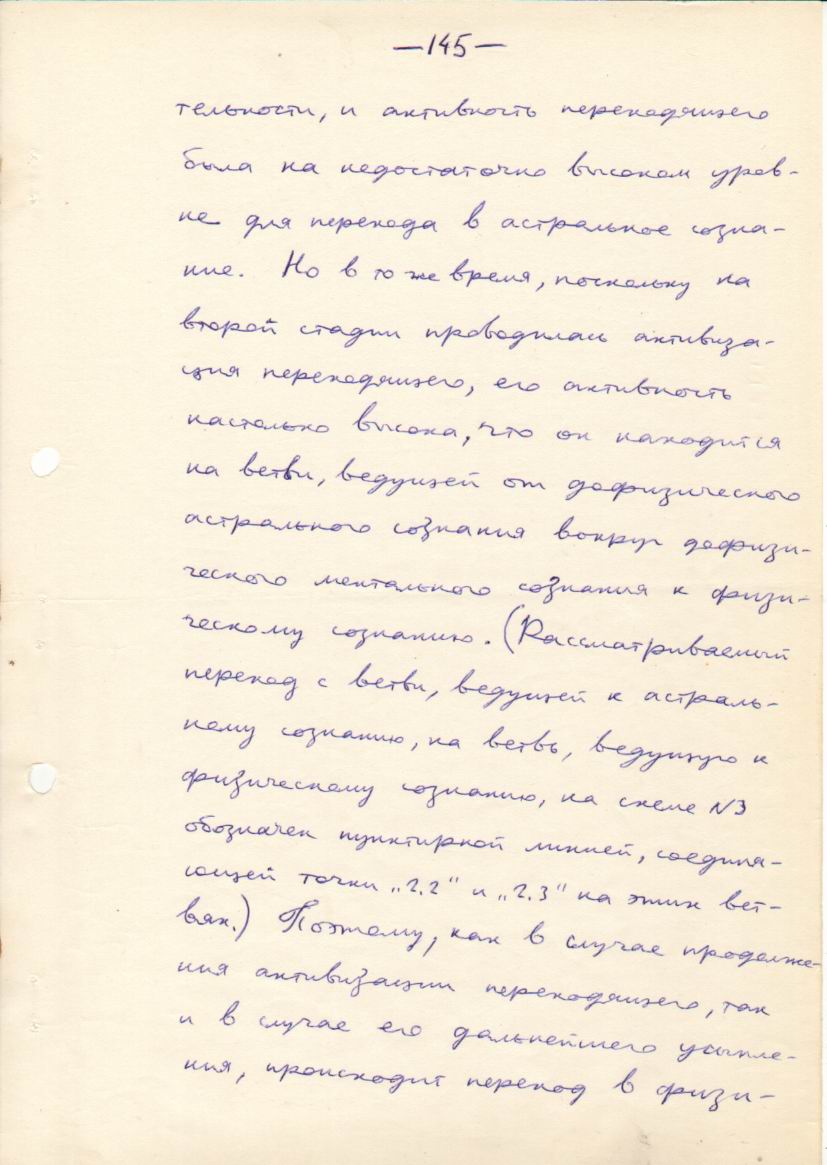 —145—
тельности, и активность переходящего
была на недостаточно высоком уров-
не для перехода в астральное созна-
ние. Но в то же время, поскольку на
второй стадии проводилась активиза-
ция переходящего, его активность
настолько высока, что он находится
на ветви, ведущей от дофизического
астрального сознания вокруг дофизи-
ческого ментального сознания к физи-
ческому сознанию. (Рассматриваемый
переход с ветви, ведущей к астраль-
ному сознанию, на ветвь, ведущую к
физическому сознанию, на схеме №3
обозначен пунктирной линией, соединя-
ющей точки „2.2“ и „2.3“ на этих вет-
вях.) Поэтому, как в случае продолже-
ния активизации переходящего, так
и в случае его дальнейшего усыпле-
ния, происходит переход в физи-